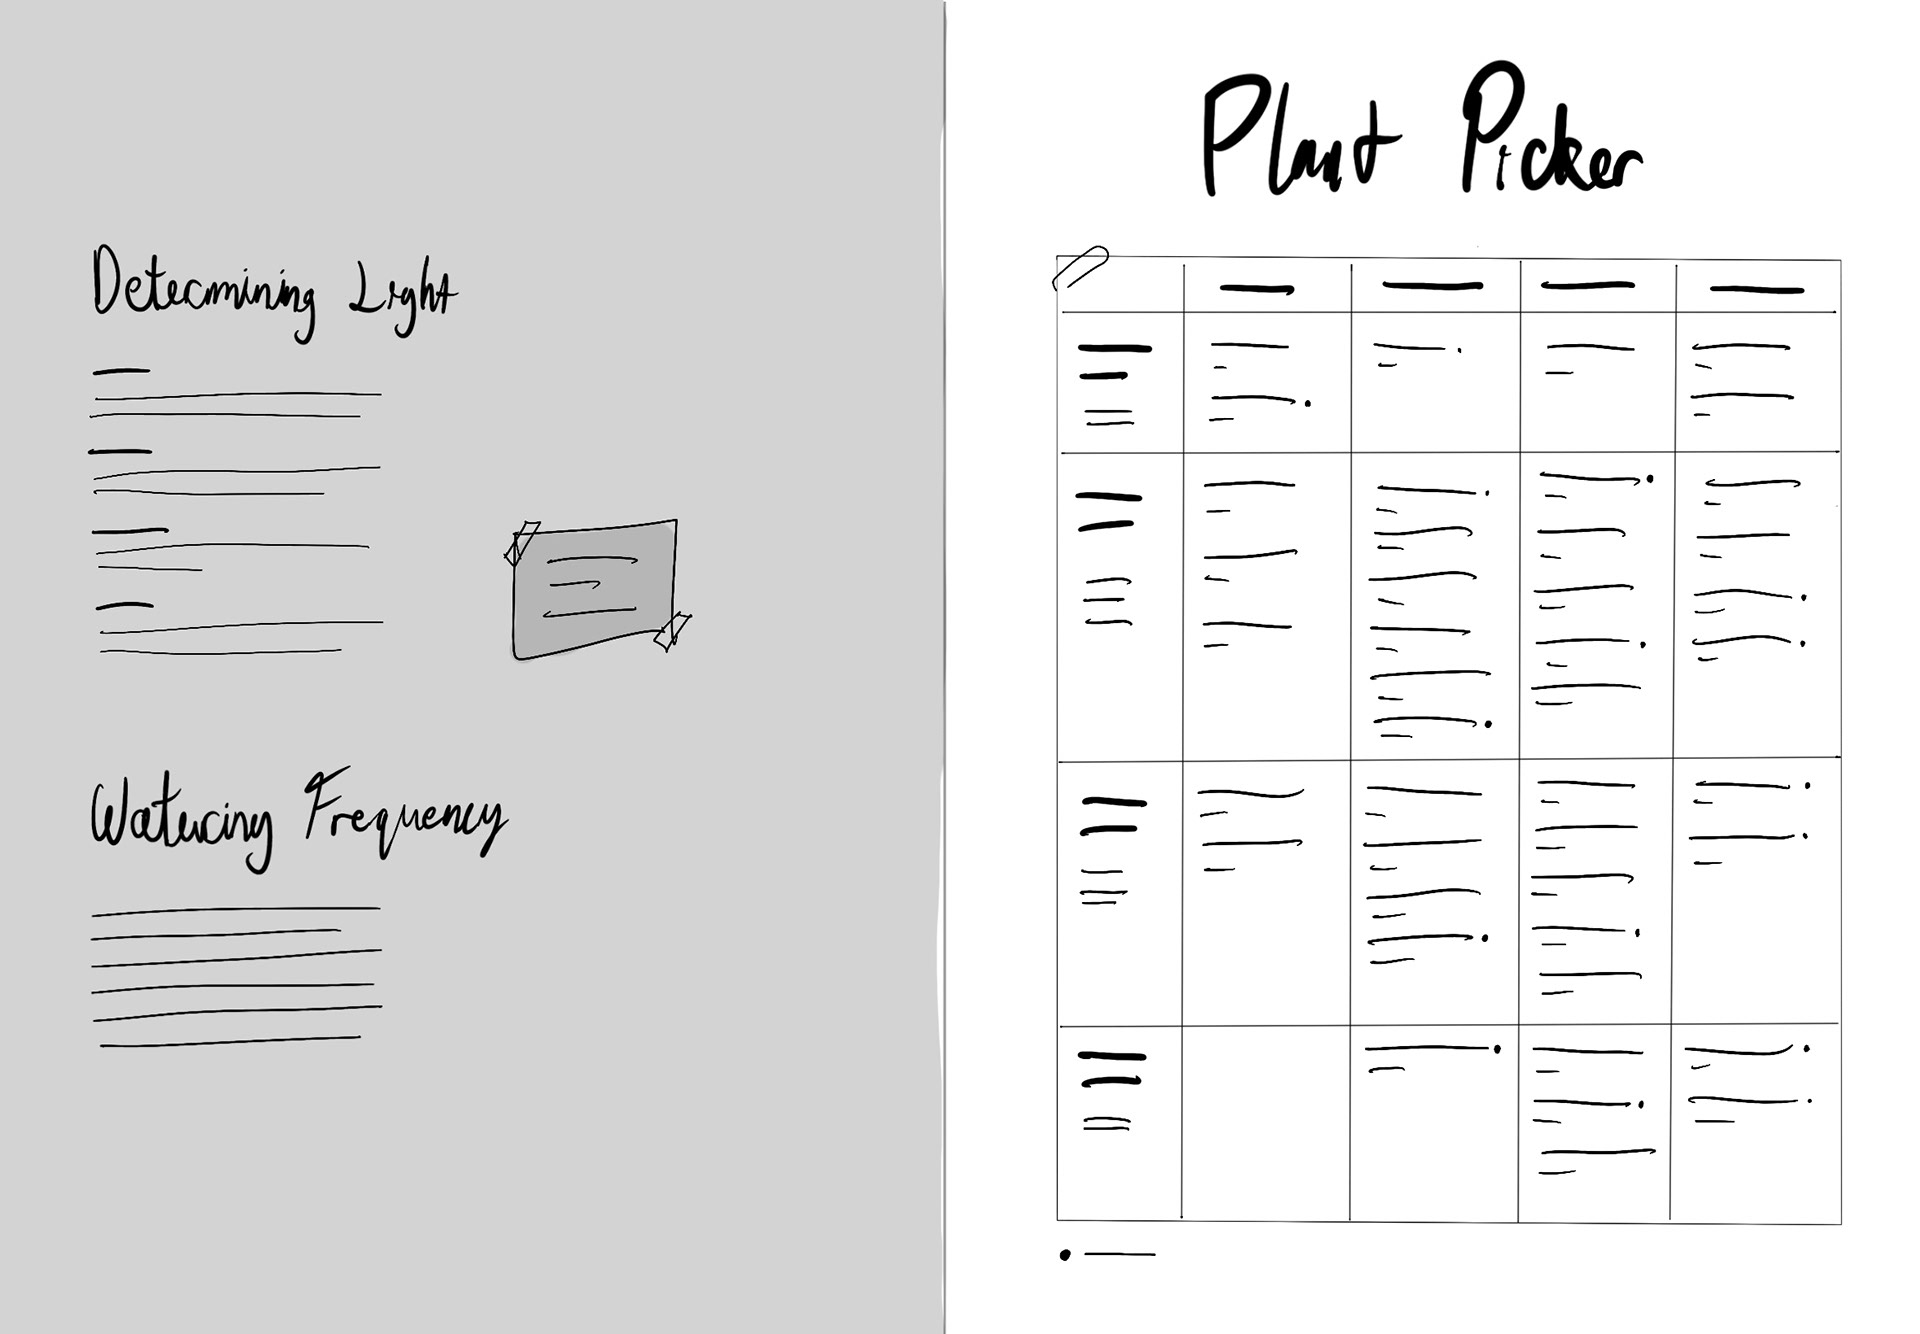 Determining Light
Watering Frequency
Plant Picker